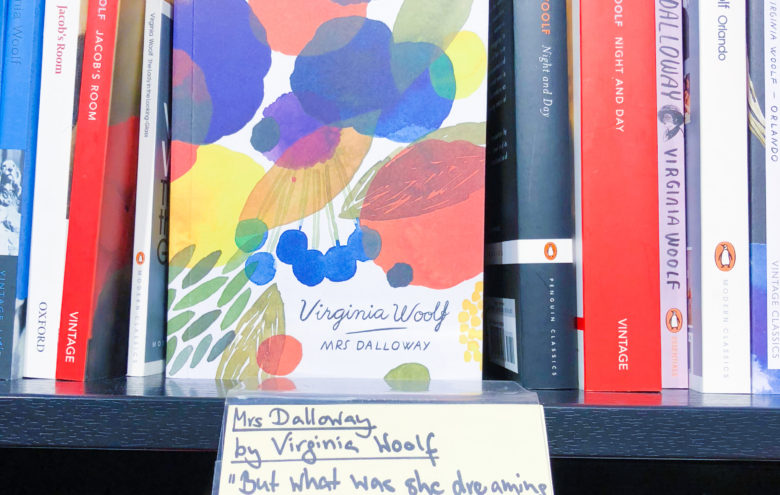 Woolf
VINTAGE
Jacob's Room
OXFORD
OLF JACOB'S ROOM
VINTAGE
Virginia Woolf The Lady in the Looking-Glass
MODERN CLASSICS
Virginia Woolf
MRS DALLOWAY
OOLF Night and Day
PENGUIN CLASSICS
OLF NIGHT AND DAY
VINTAGE
DALLOWAY
VIRGINIA WOOLF
ESSENTIALS
olf Orlando
MODERN CLASSICS
VIRGINIA WOOLF – ORLANDO
VINTAGE CLASSICS
Mrs Dalloway
by Virginia Woolf
"But what was she dreaming